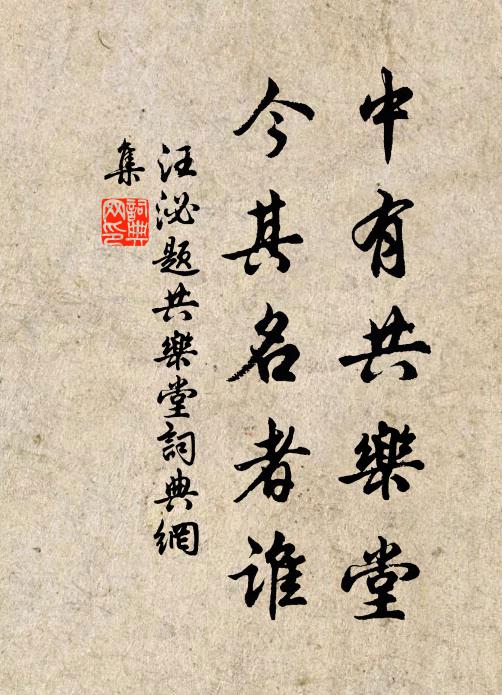 中有共樂堂
今其名者誰
汪泌題共樂堂詞典網
集
詞典網印